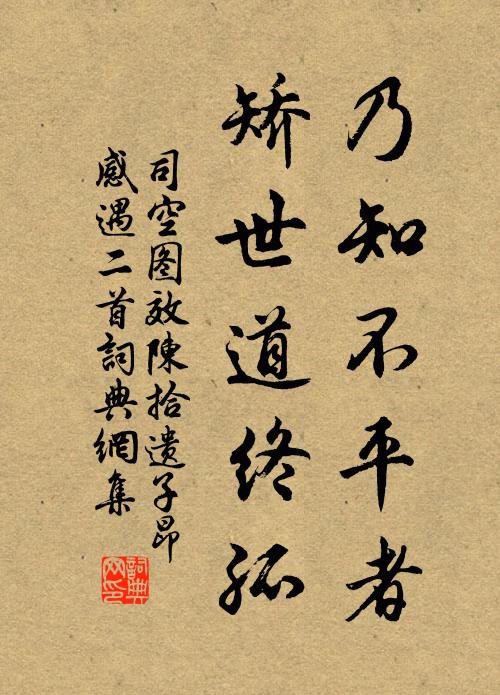 乃知不平者
矫世道终孤
司空图效陳拾遗子昂
感遇二首詞典網集
詞典
网印